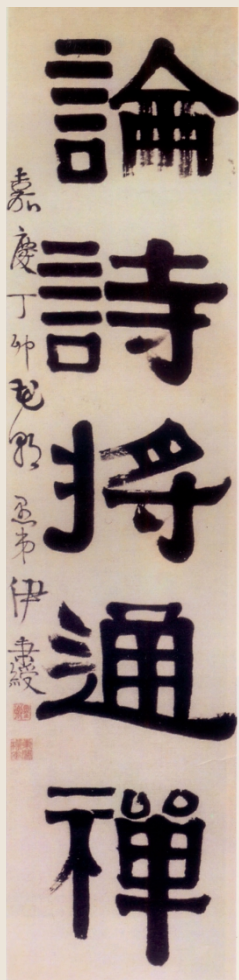 論詩將通禪
嘉慶丁卯花朝 愚弟伊秉綬